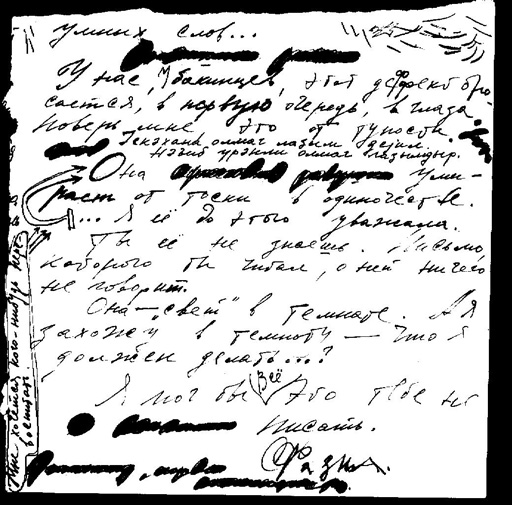 умных слов...
У нас, бакинцев, этот дефект бро-
сается, в первую очередь, в глаза.
Поверь мне это от тупости.
Зекэхана олмаг лазым дейил.
Нэчиб үрэкли олмаг лазымдыр.
Она уми-
рает от тоски в одиночестве.
... Я её до этого уважала.
Ты её не знаешь. Письмо,
которого ты читал, о ней ничего
не говорит.
Она — "свет" в темноте. А я
захожу в темноту — что я
должен делать...?
Я мог бы всё это тебе не
писать.
Фазил.
Мне хочется кого-нибудь
воспитать